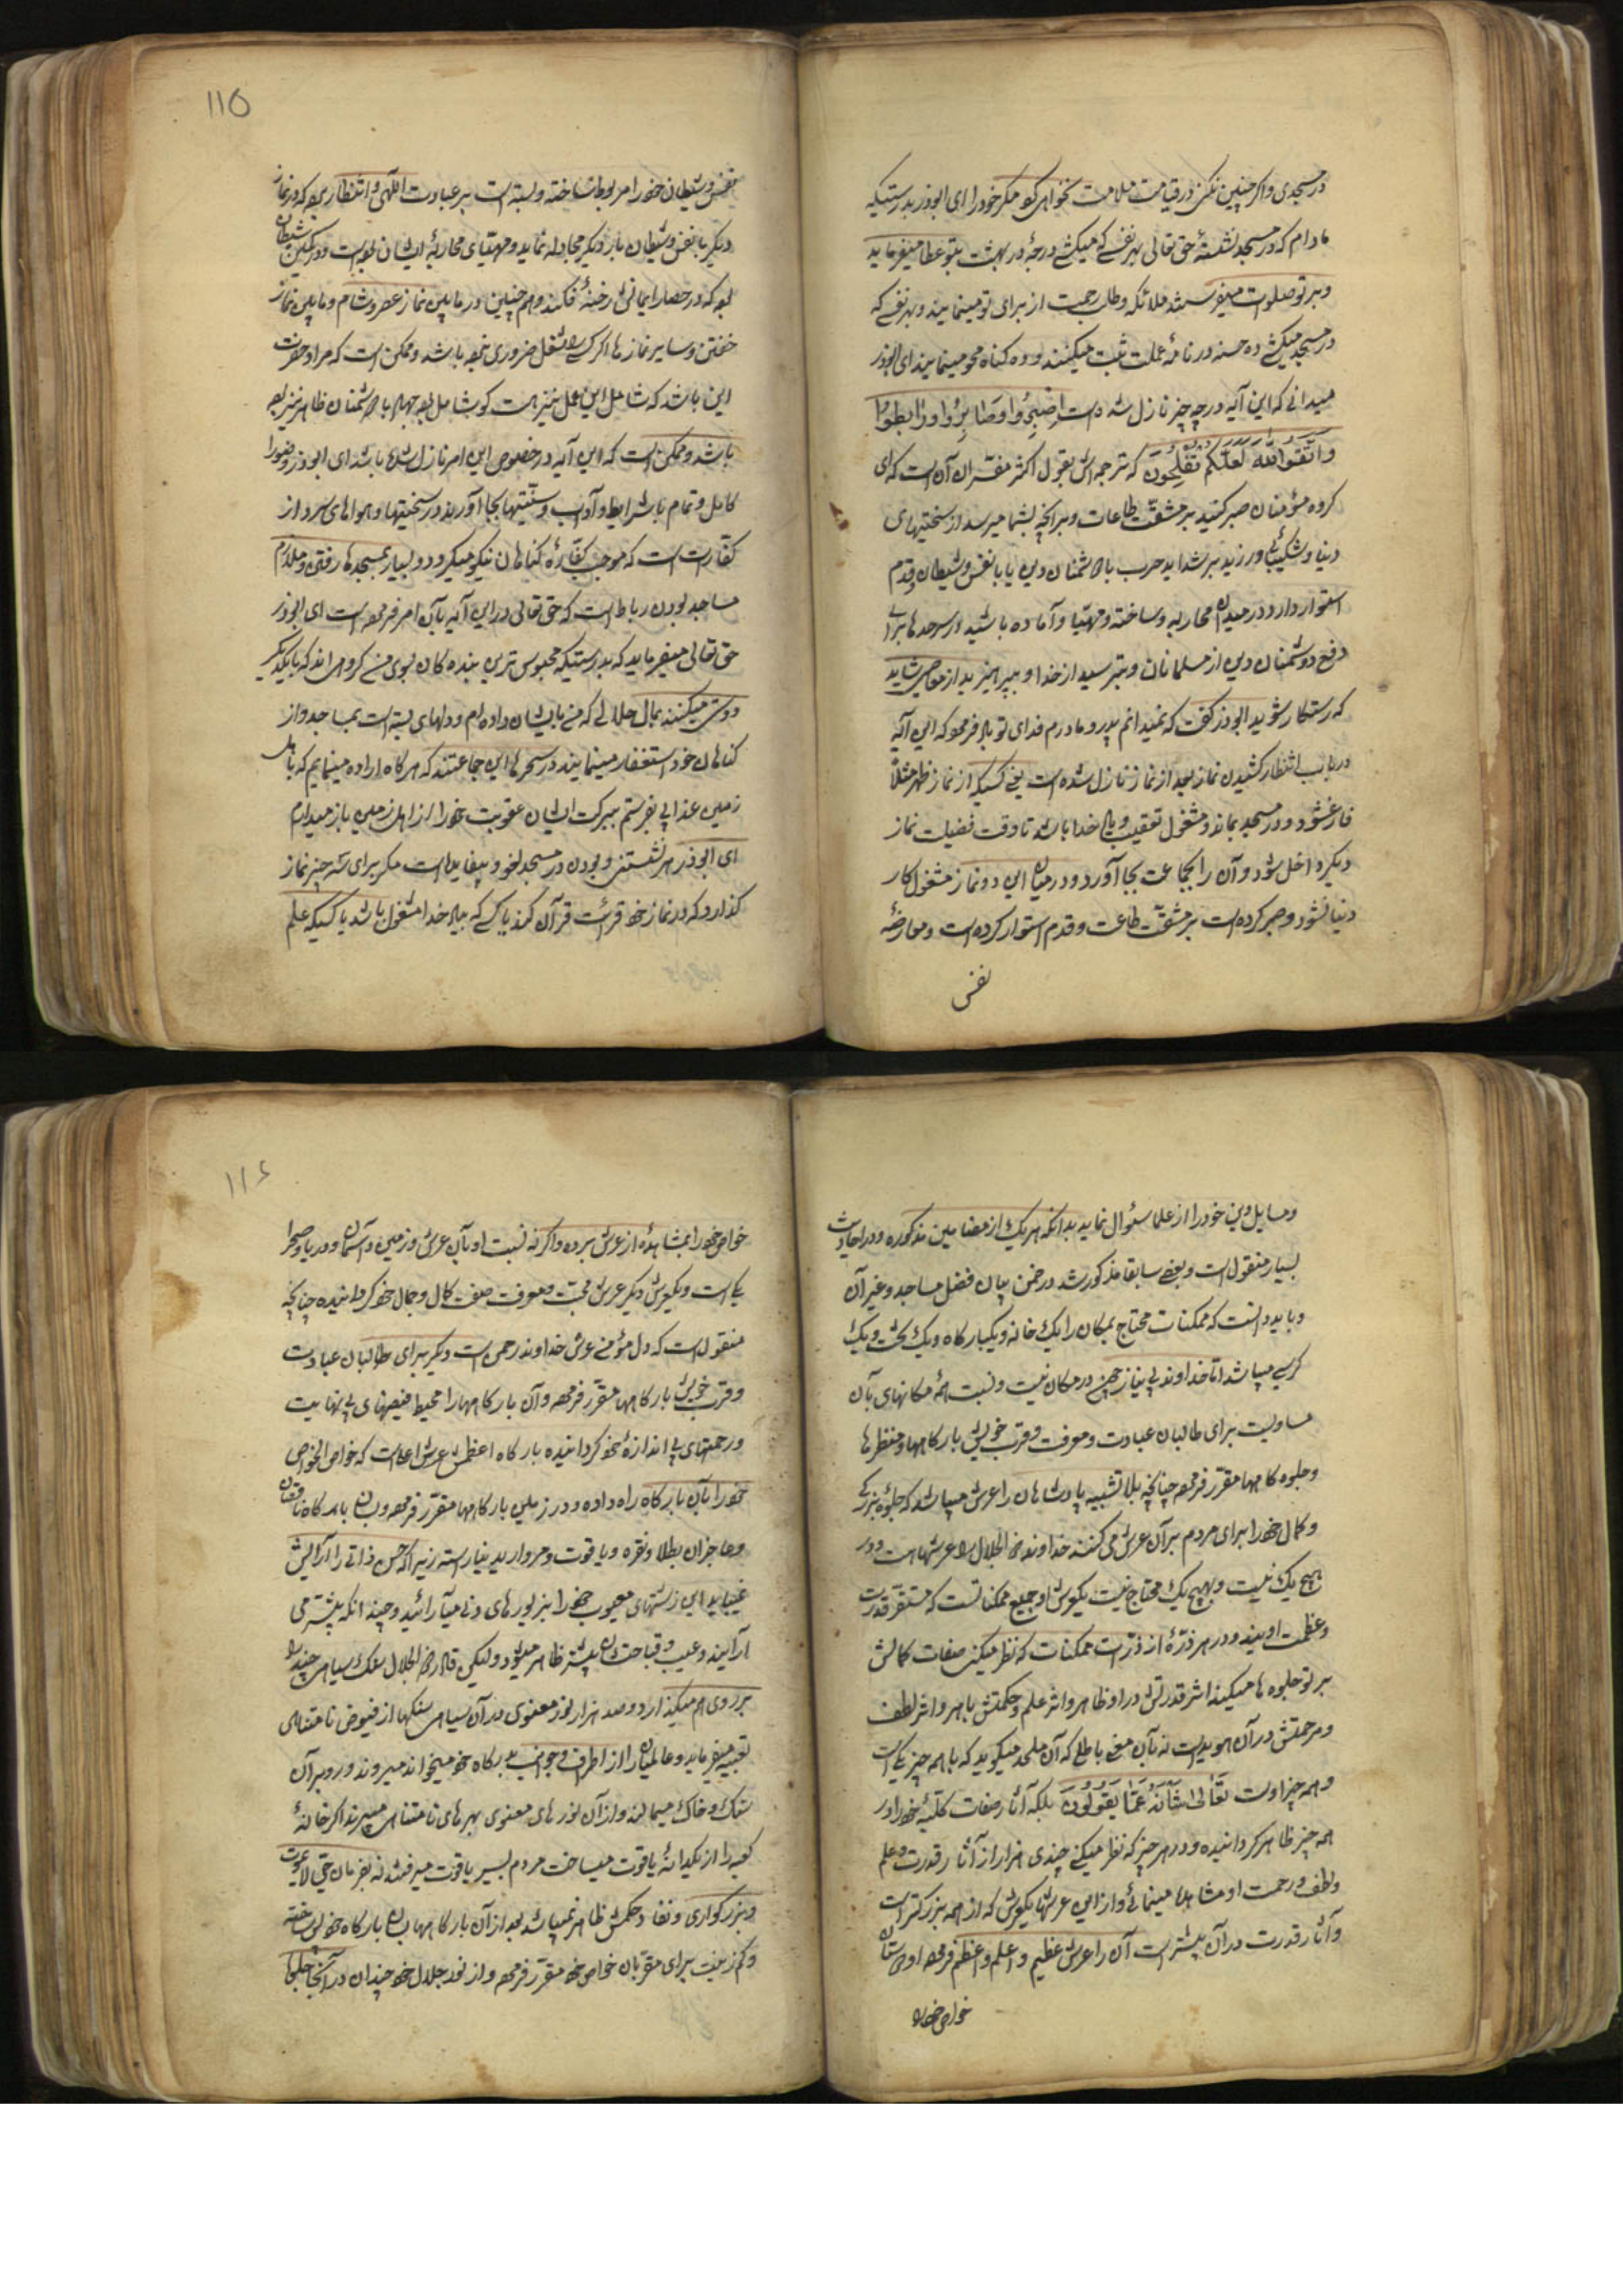 در مسجدی و اکر چنین نکنی در قیامت ملامت نخواهی کرد مکر خود را ای ابوذر بدرستیکه
مادام که در مسجد نشسته حق تعالی بهر نفسی که میکشی درجهٔ در بهشت بتو عطا میفرماید
و بر تو صلوات میفرستند ملائکه و طلب رحمت از برای تو مینمایند و بهر نفسی که
در مسجد میکشی ده حسنه در نامهٔ عملت ثبت میکنند و ده کناه محو مینمایند ای ابوذر
میدانی که این آیه در چه چیز نازل شده است اصْبِرُوا وَصَابِرُوا وَرَابِطُوا
وَاتَّقُوا اللّٰهَ لَعَلَّکُم تُفْلِحُونَ که ترجمه‌اش بقول اکثر مفسّران آن است که ای
کروه مؤمنان صبر کنید بر مشقّت طاعات و بر آنچه بشما میرسد از سختیهای
دنیا و شکیبائی ورزید بر شداید حرب با دشمنان دین یا با نفس و شیطان و قدم
استوار دارد در میدان محاربه و ساخته و مهیّا و آماده باشید در سرحدها برای
دفع دشمنان دین از مسلمانان و بترسید از خدا و بپرهیزید از معاصی شاید
که رستکار شوید ابوذر کفت که نمیدانم پدر و مادرم فدای تو باد فرمود که این آیه
در باب انتظار کشیدن نماز بعد از نماز نازل شده است یعنی کسیکه از نماز ظهر مثلاً
فارغ شود و در مسجد بماند و مشغول تعقیب و یاد خدا باشد تا وقت فضیلت نماز
دیکر داخل شود و آن را بجماعت بجا آورد و در میان این دو نماز مشغول کار
دنیا نشود و صبر کرده است بر مشقّت طاعت و قدم استوار کرده است و معارضهٔ
نفس
115
نفس و شیطان خود را مربوط ساخته و بسته است بر عبادت الٓهی و انتظار میبرد که در نماز
دیکر با نفس و شیطان بار دیکر مجادله نماید و مهیّای محاربهٔ ایشان بوده است و در کمین شیطان
بود که در حصار ایمانش رخنهٔ نفکند و همچنین در مابین نماز عصر و شام و مابین نماز
خفتن و سایر نمازها اکر کسی را شغل ضروری نبوده باشد و ممکن است که مراد حضرت
این باشد که شامل این عمل نیز هست کو شامل بوده جهاد با دشمنان ظاهر نیز بوده
باشد و ممکن است که این آیه در خصوص این امر نازل شده باشد ای ابوذر وضو را
کامل و تمام با شرایط و آداب و سنّتیها بجا آوردن در سختیها و هواهای سرد از
کفّارات است که موجب کفّارهٔ کناهان نیکو میکردد و بسیار بمسجدها رفتن و ملازم
مساجد بودن رباط است که حق تعالی در این آیه بآن امر فرموده است ای ابوذر
حق تعالی میفرماید که بدرستیکه محبوس ترین بنده کان بسوی من کروهی‌اند که با یکدیکر
دوستی میکنند بمال حلالی که من بایشان داده‌ام و دلهای بسته است بمساجد و از
کناهان خود استغفار مینمایند در سحرها این جماعتند که هر کاه اراده مینمایم که باهل
زمین عذابی بفرستم ببرکت ایشان عقوبت خود را از اهل زمین باز میدارم
ای ابوذر هر نشستن و بودن در مسجد لغو و بیفایده است مکر برای سه چیز نماز
کذارد که در نماز خود قرائت قرآن کند یا کسی که بیاد خدا مشغول باشد یا کسیکه علم
و مسایل دین خود را از علما سئوال نماید بدانکه هر یک از مضامین مذکوره در احادیث
بسیار منقول است و بعضی سابقا مذکور شد در ضمن بیان فضل مساجد و غیر آن
و باید دانست که ممکنات محتاج بمکان را یک خانه و یکبارکاه و یک تخت و یک
کرسی میباشد امّا خداوند بی نیاز چون در مکان نیست و نسبت همهٔ مکانهای بآن
مساویست برای طالبان عبادت و معرفت و قرب خویش بارکاهها و منظرها
و جلوه کاهها مقرّر فرموده چنانچه بلا تشبیه پادشاهان را عرش میباشد که جلوهٔ بزرکی
و کمال خود را برای مردم بر آن عرش می کنند خداوند ذو الجلال را عرشهاست و در
هیچ یک نیست و بهیچ یک محتاج نیست یکعرش او جمیع ممکناتست که مستقر قدرت
و عظمت اویند و در هر ذرّهٔ از ذرّات ممکنات که نظر میکنی صفات کمالش
بر تو جلوه‌ها میکند اثر قدرتش در او ظاهر و اثر علم و حکمتش باهر و اثر لطف
و مرحمتش در آن هویداست نه بآن معنی باطل که آن ملحد میکوید که با همه چیز یکی است
و همه چیز اوست تَعَالٰی شَانُهُ عَمَّا یَقُولُونَ بلکه آثار صفات کلّیهٔ خود را در
همه چیز ظاهر کردانیده و در هر چیز که نظر میکنی چندی هزار از آثار قدرت و علم
و لطف و رحمت او مشاهده مینمائی و از این عرشها یکعرش که از همه بزرکتر است
و آثار قدرت در آن بیشتر است آن را عرش عظیم و اعلم و اعظم فرموده و دوستان
خواص خود را
116
خواص خود را بمشاهدهٔ از عرش برده و اکر نه نسبت او بآن عرش و زمین و آسمان و دریا و صحرا
یکی است و یکعرش دیکر عرش محبّت و معرفت صفت کمال و جمال خود کردانیده چنانچه
منقول است که دل مؤمن عرش خداوند رحمن است و دیکر برای طالبان عبادت
و قرب خویش بارکاهها مقرّر فرموده و آن بارکاهها را محیط فیضهای بی نهایت
و رحمتهای بی اندازهٔ خود کردانیده بارکاه اعظمش عرش اعلاست که خواص الخواص
خود را بآن بارکاه راه داده و در زمین بارکاهها مقرّر فرموده و بسان بارکاه ناقصان
و عاجزان بطلا و نقره و یاقوت و مروارید نیاراسته زیرا که حسن ذاتی را آرایش
نمیباید این زشتهای معیوب خود را بزیورهای دنی میآرایند و چندانکه بیشتر می
آرایند و عیب و قباحتشان بیشتر ظاهر میشود و لیکن قادر ذو الجلال سنک سیاهی چند را
بر روی هم میکذارد و صد هزار نور معنوی در آن سیاهی سنکها از فیوض نامتناهی
تعبیه میفرماید و عالمیان را از اطراف و جوانب بدرکاه خود میخواند میروند و رو بر آن
سنک و خاک میمالند و از آن نورهای معنوی بهرهای نامتناهی میبرند اکر خانهٔ
کعبه را از یکدانهٔ یاقوت میساخت مردم بسیر یاقوت میرفتند نه بفرمان حیّ لایموت
و بزرکواری و نفاد حکمش ظاهر نمیباشد بعد از آن بارکاهها بسان بارکاه خود ساخته
و کم زینت برای مقرّبان خواص خود مقرّر فرموده و از نور جلال خود چندان در آنجا جلوها